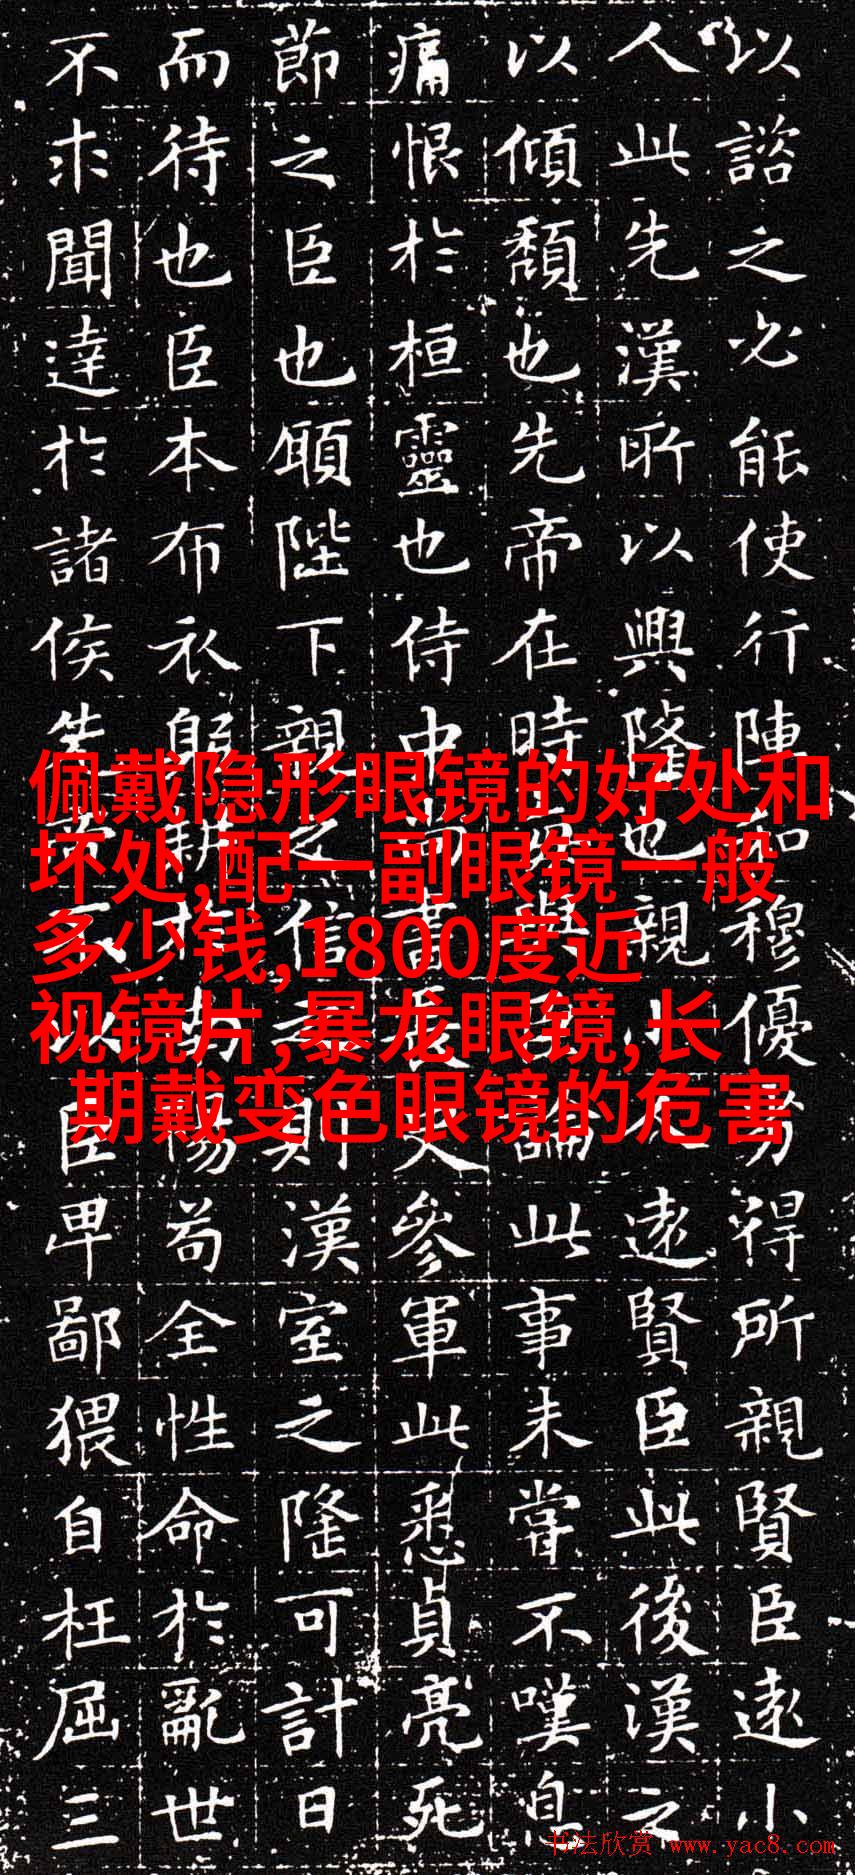 以諮之必能使行陣和穆優劣得所親賢臣遠小
人此先漢所以興隆也親小人遠賢臣此後漢之
以傾頹也先帝在時每與臣論此事未嘗不嘆息
痛恨於桓靈也侍中尚書長史參軍此悉貞亮死
節之臣也願陛下親之信之則漢室之隆可計日
而待也臣本布衣躬耕於南陽苟全性命於亂世
不求聞達於諸侯先帝不以臣卑鄙猥自枉屈三
佩戴隐形眼镜的好处和
坏处,配一副眼镜一般
多少钱,1800度近
视镜片,暴龙眼镜,长
期戴变色眼镜的危害
书法欣赏 www.yac8.com